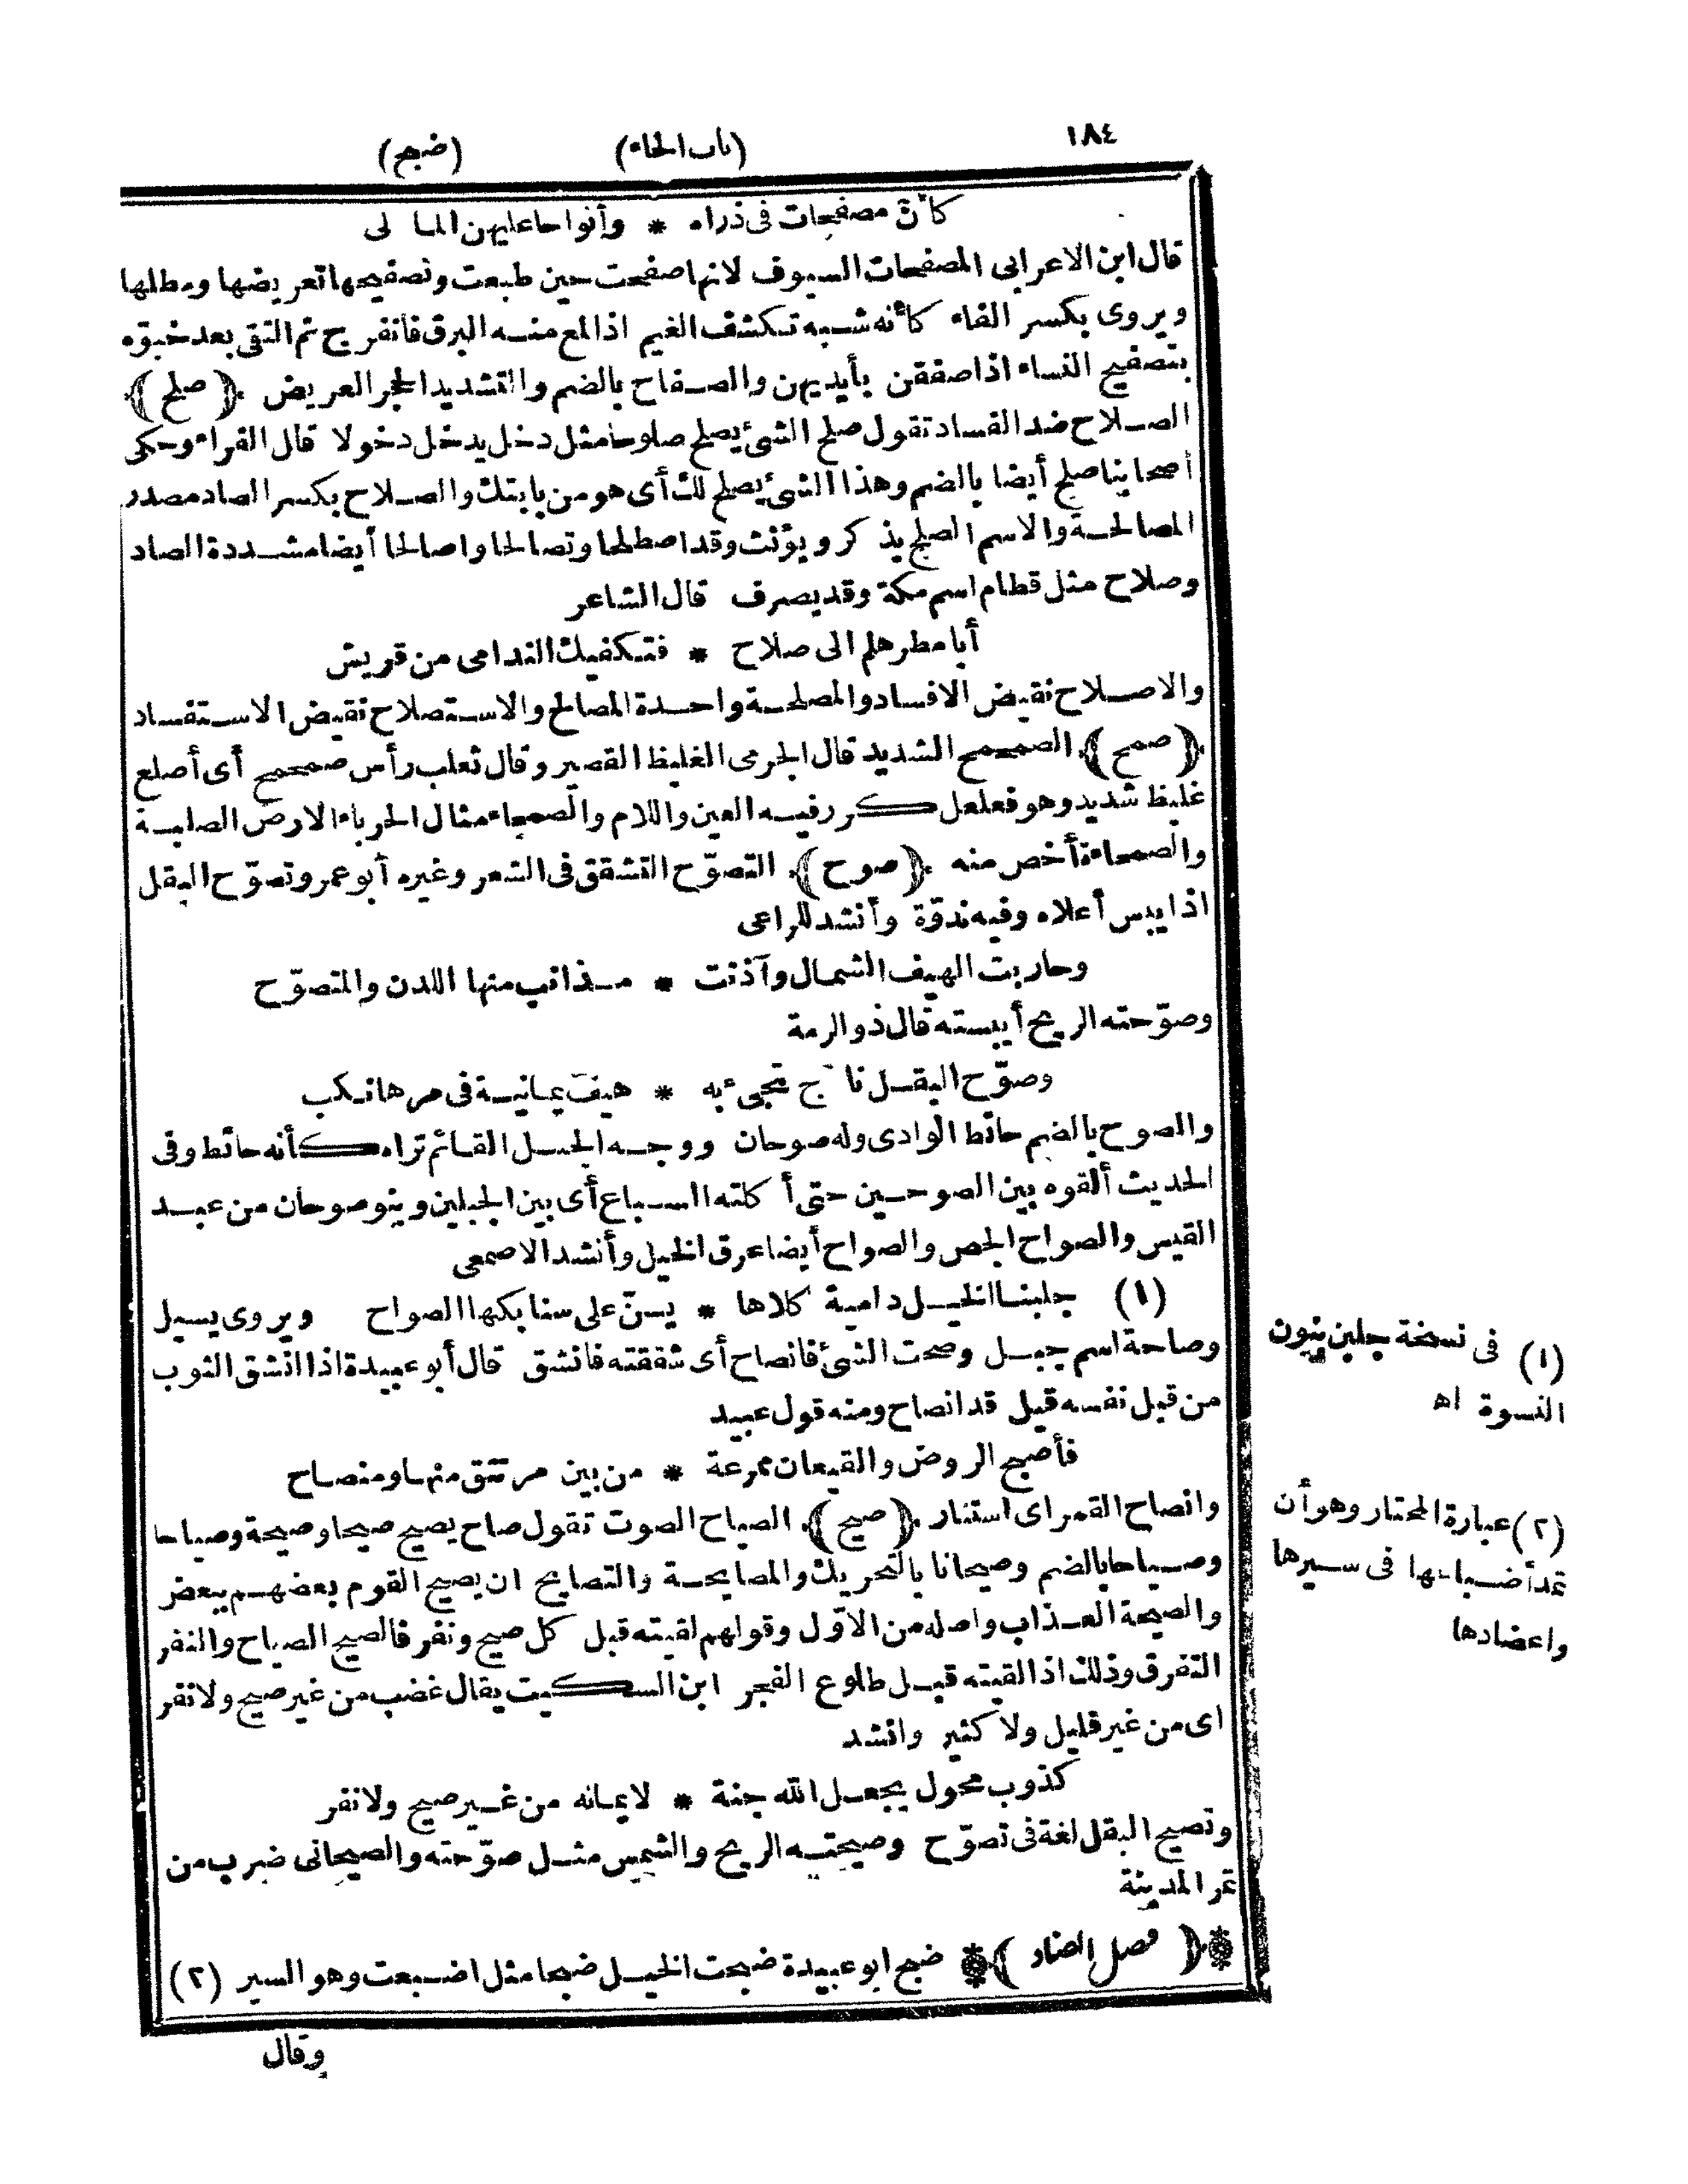 ١٨٤
(باب الحاء)
(ضبح)
كأن مصفحات فى ذراه * وأنواحا عليهن المآ لى
قال ابن الاعرابى المصفحات السيوف لانها صفحت حين طبعت وتصفيحها تعريضها ومطلها
ويروى بكسر الفاء كأنه شبه تكشف الغيم اذا لمع منه البرق فانفرج ثم التقى بعد خبوّه
بتصفيح النساء اذا صفقن بأيديهن والصفاح بالضم والتشديد الحجر العريض ﴿ صلح ﴾
الصلاح ضد الفساد تقول صلح الشئ يصلح صلوحا مثل دخل يدخل دخولا قال الفراء وحكى
أصحابنا صلح أيضا بالضم وهذا الشئ يصلح لك أى هو من بابتك والصلاح بكسر الصاد مصدر
المصالحة والاسم الصلح يذكر ويؤنث وقد اصطلحا وتصالحا واصالحا أيضا مشددة الصاد
وصلاح مثل قطام اسم مكة وقد يصرف قال الشاعر
أبا مطر هلم الى صلاح * فتكفيك الندامى من قريش
والاصلاح نقيض الافساد والمصلحة واحدة المصالح والاستصلاح نقيض الاستفساد
﴿ صمح ﴾ الصمحمح الشديد قال الجرمى الغليظ القصير وقال ثعلب رأس صمحمح أى أصلع
غليظ شديد وهو فعلعل كرر فيه العين واللام والصمحاء مثال الحرباء الارض الصلبة
والصمحاءة أخص منه ﴿ صوح ﴾ التصوّح التشقق فى الشعر وغيره أبو عمرو تصوّح البقل
اذا يبس أعلاه وفيه ندوّة وأنشد للراعى
وحاربت الهيف الشمال وآذنت * مذانب منها اللدن والمتصوّح
وصوّحته الريح أيبسته قال ذو الرمة
وصوّح البقل نا ج تجىء به * هيف يمانية فى مرها نكب
والصوح بالضم حائط الوادى وله صوحان ووجه الجبل القائم تراه كأنه حائط وفى
الحديث ألقوه بين الصوحين حتى أكلته السباع أى بين الجبلين وبنو صوحان من عبد
القيس والصواح الجص والصواح أيضا عرق الخيل وأنشد الاصمعى
(١) جلبنا الخيل دامية كلاها * يسنّ على سنابكها الصواح ويروى يسيل
وصاحة اسم جبل وصحت الشئ فانصاح أى شققته فانشق قال أبو عبيدة اذا انشق الثوب
من قبل نفسه قيل قد انصاح ومنه قول عبيد
فأصبح الروض والقيعان ممرعة * من بين مرتتق منها ومنصاح
وانصاح القمر اى استنار ﴿ صيح ﴾ الصياح الصوت تقول صاح يصيح صيحا وصيحة وصياحا
وصياحا بالضم وصيحانا بالتحريك والمصايحة والتصايح ان يصيح القوم بعضهم ببعض
والصيحة العذاب واصله من الاوّل وقولهم لقيته قبل كل صيح ونفر فالصيح الصياح والنفر
التفرق وذلك اذا لقيته قبل طلوع الفجر ابن السكيت يقال غضب من غير صيح ولا نفر
اى من غير قليل ولا كثير وانشد
كذوب محول يجعل الله جنة * لايمانه من غير صيح ولا نفر
وتصيح البقل لغة فى تصوّح وصيحته الريح والشمس مثل صوّحته والصيحانى ضرب من
تمر المدينة
﴿ فصل الضاد ﴾ ضبح ابو عبيدة ضبحت الخيل ضبحا مثل اضبعت وهو السير (٢)
وقال
(١) فى نسخة جلبن بنون
النسوة اه
(٢) عبارة المختار وهو أن
تمد أضباعها فى سيرها
واعضادها